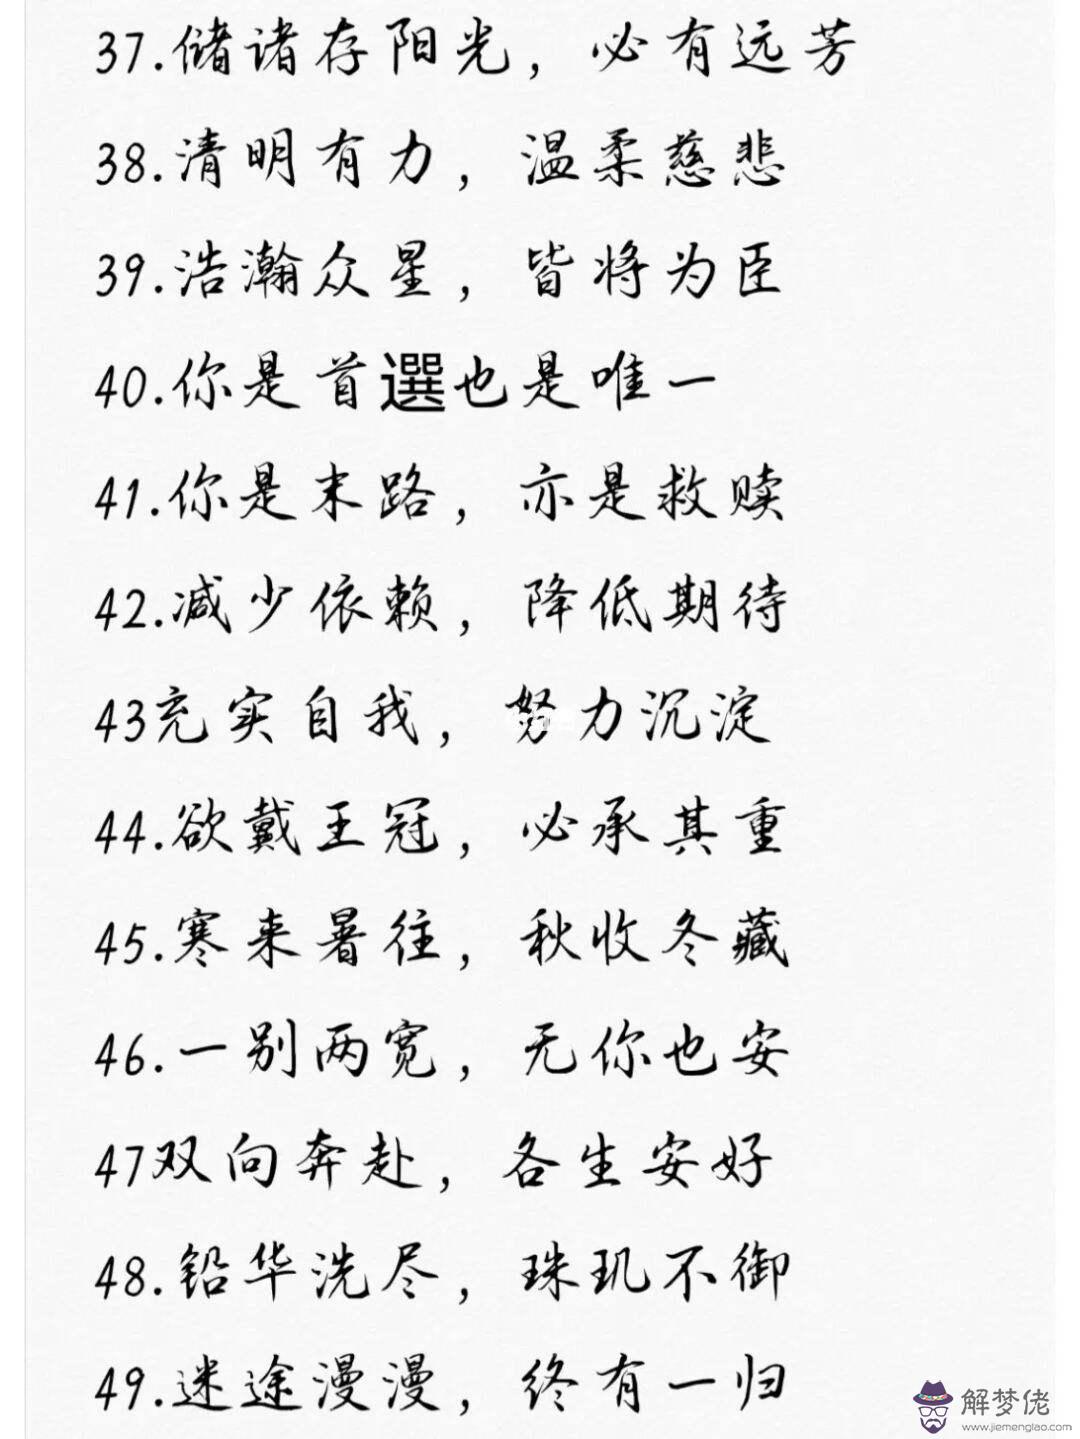 37.储诸存阳光，必有远芳
38.清明有力，温柔慈悲
39.浩瀚众星，皆将为臣
40.你是首選也是唯一
41.你是末路，亦是救赎
42.减少依赖，降低期待
43充实自我，努力沉淀
44.欲戴王冠，必承其重
45.寒来暑往，秋收冬藏
46.一别两宽，无你也安
47双向奔赴，各生安好
48.铅华洗尽，珠玑不御
49.迷途漫漫，终有一归
解梦佬
www.jiemenglao.com